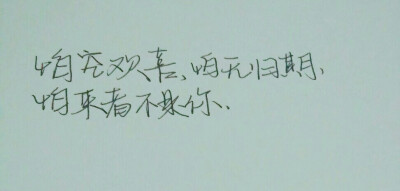 怕空欢喜、怕无归期,
怕来者不是你.